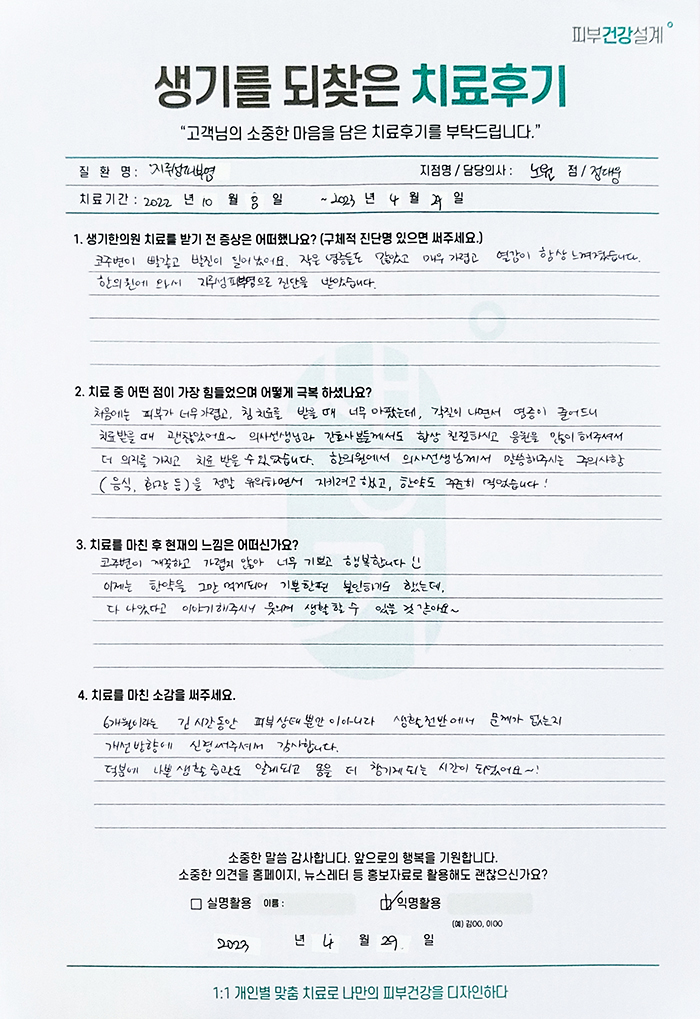 피부건강설계
생기를 되찾은 치료후기
“고객님의 소중한 마음을 담은 치료후기를 부탁드립니다.”
질 환 명 : 지루성피부염 지점명 / 담당의사 : 노원 점 / 정대웅
치료기간 : 2022 년 10 월 8 일 ~ 2023 년 4 월 29 일
1. 생기한의원 치료를 받기 전 증상은 어떠했나요? (구체적 진단명 있으면 써주세요.)
코주변이 빨갛고 발진이 일어났어요. 작은 염증들도 많았고 매우 가렵고 열감이 항상 느껴졌습니다.
한의원에 와서 지루성피부염으로 진단을 받았습니다.
2. 치료 중 어떤 점이 가장 힘들었으며 어떻게 극복 하셨나요?
처음에는 피부가 너무 가렵고, 침 치료를 받을 때 너무 아팠는데, 각질이 나면서 염증이 줄어드니
치료받을 때 괜찮았어요~ 의사선생님과 간호사분들께서도 항상 친절하시고 응원을 많이 해주셔서
더 의지를 가지고 치료 받을 수 있었습니다. 한의원에서 의사선생님께서 말씀해주시는 주의사항
(음식, 화장 등)을 정말 유의하면서 지키려고 했고, 한약도 꾸준히 먹었습니다!
3. 치료를 마친 후 현재의 느낌은 어떠신가요?
코주변이 깨끗하고 가렵지 않아 너무 기쁘고 행복합니다!!
이제는 한약을 그만 먹게되어 기쁘한편 불안하기도 했는데,
다 나았다고 이야기해주시니 웃으며 생활할 수 있을 것 같아요~
4. 치료를 마친 소감을 써주세요.
6개월이라는 긴 시간동안 피부상태 뿐만 이아니라 생활전반에서 문제가 없는지
개선방향에 신경써주셔서 감사합니다.
덕분에 나쁜 생활습관도 알게되고 몸을 더 챙기게 되는 시간이 되었어요~!
소중한 말씀 감사합니다. 앞으로의 행복을 기원합니다.
소중한 의견을 홈페이지, 뉴스레터 등 홍보자료로 활용해도 괜찮으신가요?
□ 실명활용 이름 : ☑ 익명활용
(예) 김OO, 이OO
2023 년 4 월 29. 일
1:1 개인별 맞춤 치료로 나만의 피부건강을 디자인하다